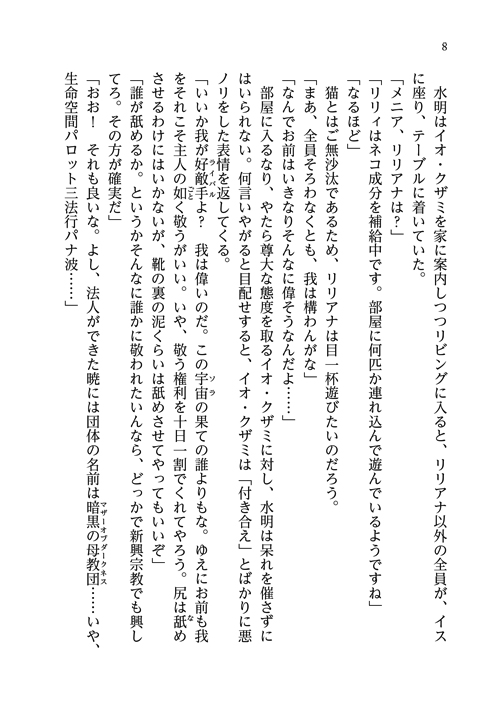 8
　水明はイオ・クザミを家に案内しつつリビングに入ると、リリアナ以外の全員が、イス
に座り、テーブルに着いていた。
「メニア、リリアナは？」
「リリィはネコ成分を補給中です。部屋に何匹か連れ込んで遊んでいるようですね」
「なるほど」
　猫とはご無沙汰であるため、リリアナは目一杯遊びたいのだろう。
「まあ、全員そろわなくとも、我は構わんがな」
「なんでお前はいきなりそんなに偉そうなんだよ……」
　部屋に入るなり、やたら尊大な態度を取るイオ・クザミに対し、水明は呆れを催さずに
はいられない。何言いやがると目配せすると、イオ・クザミは「付き合え」とばかりに悪
ノリをした表情を返してくる。
「いいか我が好敵手よ？　我は偉いのだ。この宇宙の果ての誰よりもな。ゆえにお前も我
ライバル
ソラ
をそれこそ主人の如く敬うがいい。いや、敬う権利を十日一割でくれてやろう。尻は舐め
ごと
な
させるわけにはいかないが、靴の裏の泥くらいは舐めさせてやってもいいぞ」
「誰が舐めるか。というかそんなに誰かに敬われたいんなら、どっかで新興宗教でも興し
てろ。その方が確実だ」
「おお！　それも良いな。よし、法人ができた暁には団体の名前は暗黒の母教団……いや、
マザーオブダークネス
生命空間パロット三法行パナ波……」